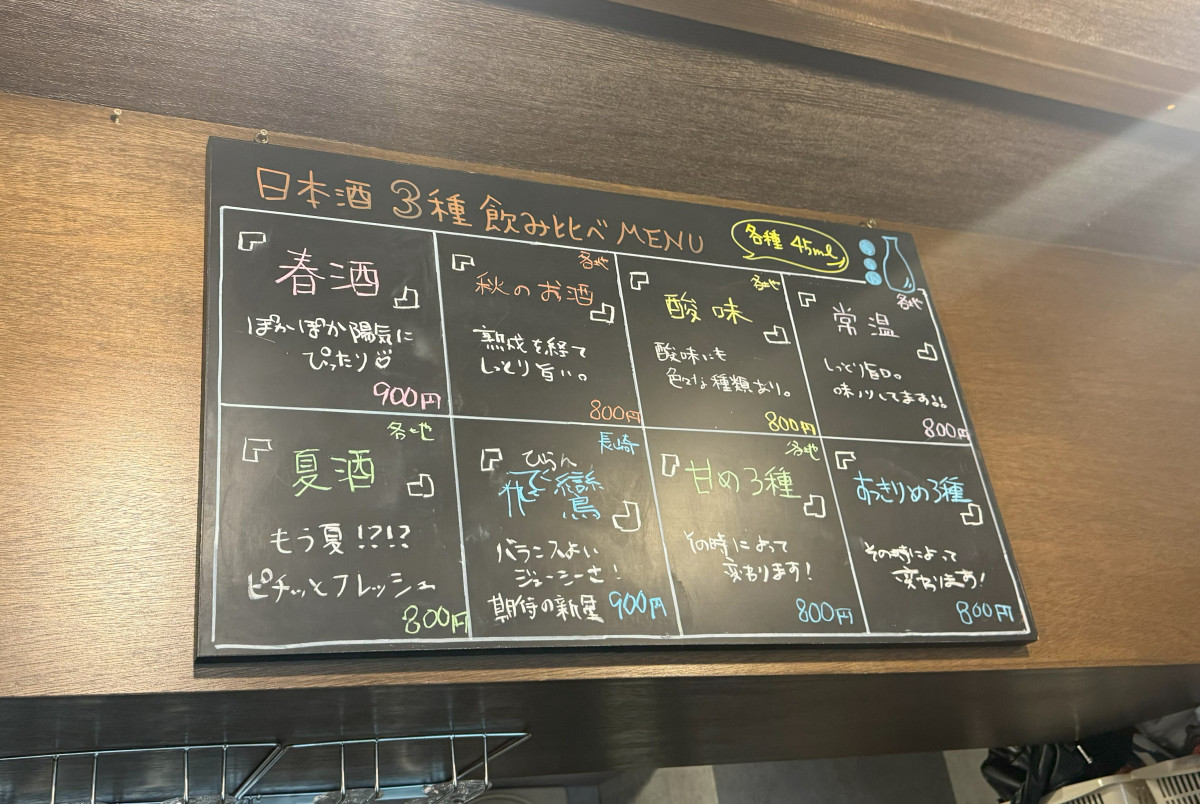 日本酒 3種 飲み比べ MENU
各種 45ml
「春酒」
ぽかぽか陽気に
ぴったり♡
900円
各地
「秋のお酒」
熟成を経て
しっとり旨い。
800円
各地
「酸味」
酸味にも
色々な種類あり。
800円
各地
「常温」
しっとり旨口。
味ノリしてます!!
800円
各地
「夏酒」
もう夏!?!?
ピチッとフレッシュ
800円
長崎
ひらん
「飛鸞」
バランスよい
ジューシーさ!
期待の新星 900円
各地
「甘め3種」
その時によって
変わります!
800円
「すっきりめ3種」
その時によって
変わります!
800円